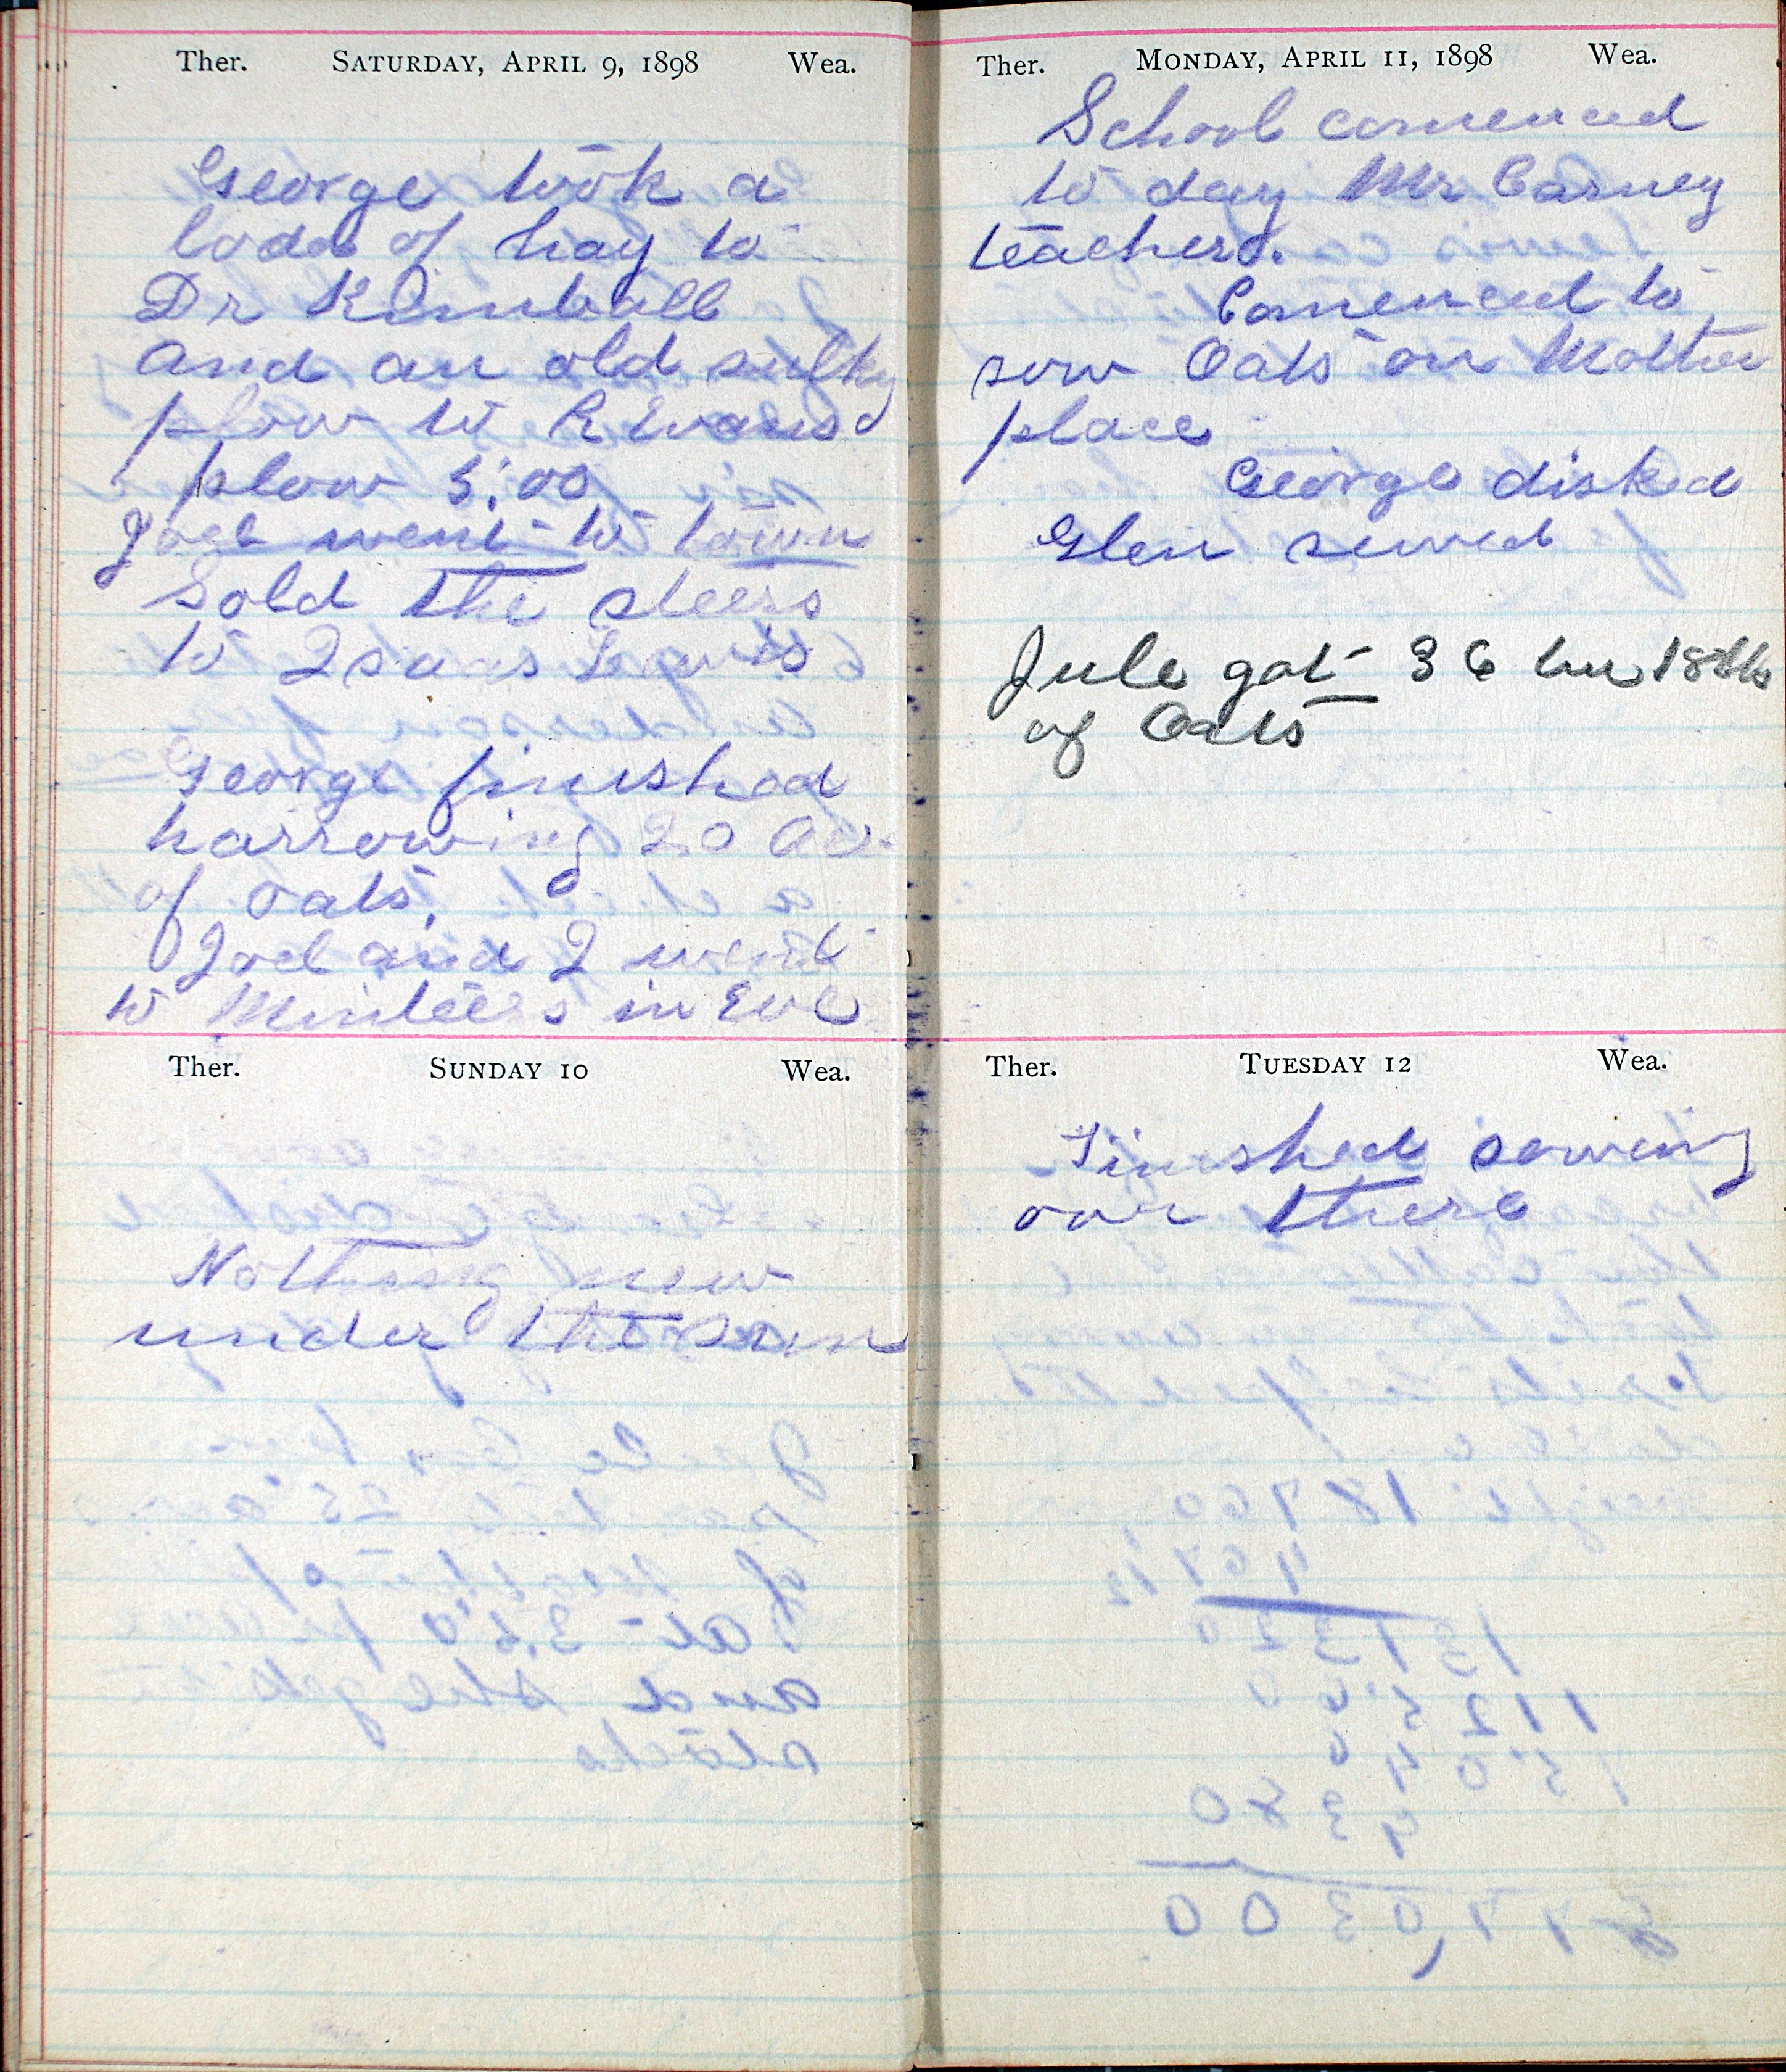 Ther. SATURDAY, APRIL 9, 1898 Wea.
George took a
lode of hay to
Dr Kimball
and an old sulky
plow to R Evans
plow 5.00
Joel went to town
Sold the steers
to Isaas Lewis
George finished
harrowing 20 Acr
of oats.
Joel and I went
to Minteers in Eve
Ther. SUNDAY 10 Wea.
Nothing new
under the sun
Ther. MONDAY, APRIL 11, 1898 Wea.
School comenced
to day Mr Carney
teacher.
Comenced to
sow Oats on Mother
place
George disked
Glen sewed
Jule got 36 bu 18 lbs
of Oats
Ther. TUESDAY 12 Wea.
Finished sowing
over there